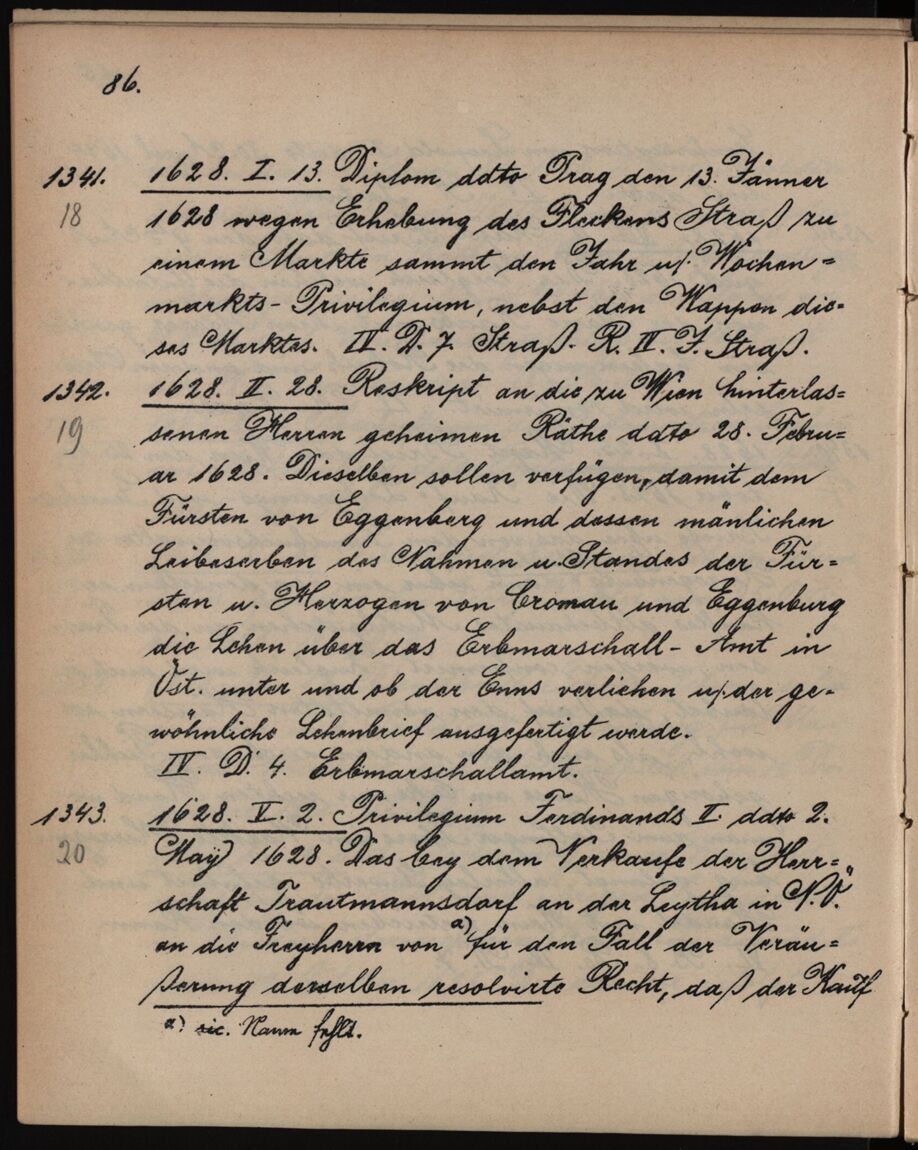 86.
1341. 1628. I. 13. Diplom ddto Prag den 13. Jänner
18 1628 wegen Erhebung des Fleckens Straß zu
einem Markte sammt den Jahr u/. Wochen=
markts-Privilegium, nebst den Wappen die=
ses Marktes. IV. D. 7. Straß. R. IV. J. Straß.
1342. 1628. II. 28. Reskript an die zu Wien hinterlas=
19 senen Herren geheimen Räthe ddto 28. Febru=
ar 1628. Dieselben sollen verfügen, damit dem
Fürsten von Eggenberg und dessen mänlichen
Leibeserben des Nahmen u. Standes der Für=
sten u. Herzogen von Cromau und Eggenburg
die Lehen über das Erbmarschall-Amt in
Öst. unter und ob der Enns verliehen u/. der ge=
wöhnliche Lehenbrief ausgefertigt werde.
IV. D. 4. Erbmarschallamt.
1343. 1628. V. 2. Privilegium Ferdinands II. ddto 2.
20 Maÿ 1628. Das bey dem Verkaufe der Herr=
schaft Trautmannsdorf an der Leytha in N.Ö.
an die Freyherrn von a) für den Fall der Veräu=
ßerung derselben resolvirte Recht, daß der Kauf
a) sic. Name fehlt.